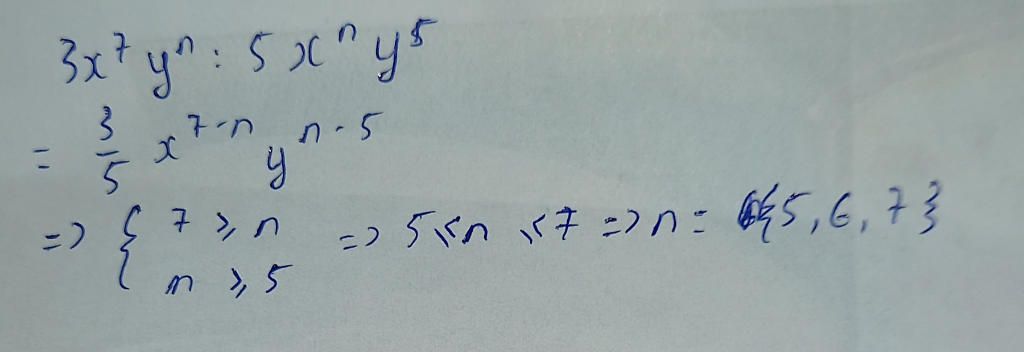 3x⁷ yⁿ : 5 xⁿ y⁵
= 3/5 x⁷⁻ⁿ yⁿ⁻⁵
=> { 7 ⩾ n => 5 ⩽ n ⩽ 7 => n = {5, 6, 7}
n ⩾ 5